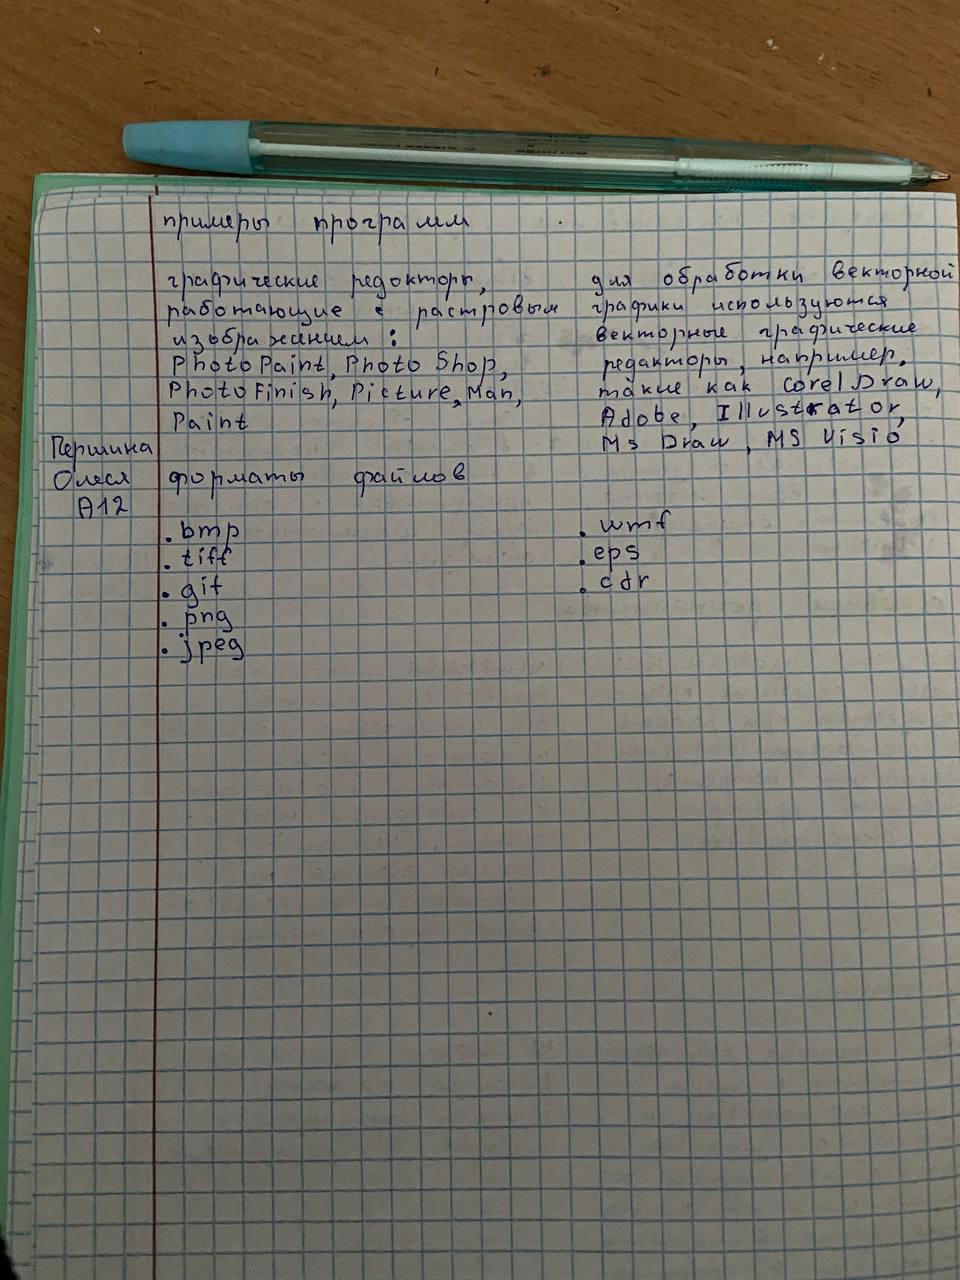 примеры программ
графические редокторы,
работающие с растровым
изображением :
Photo Paint, Photo Shop,
Photo Finish, Picture, Man,
Paint
для обработки векторной
графики используются
векторные графические
редакторы, например,
такие как Corel Draw,
Adobe, Illustrator,
Ms Draw, MS Visio
Першина
Олеся
А12
форматы файлов
. bmp
. tiff
. gif
. png
. jpeg
. wmf
. eps
. cdr